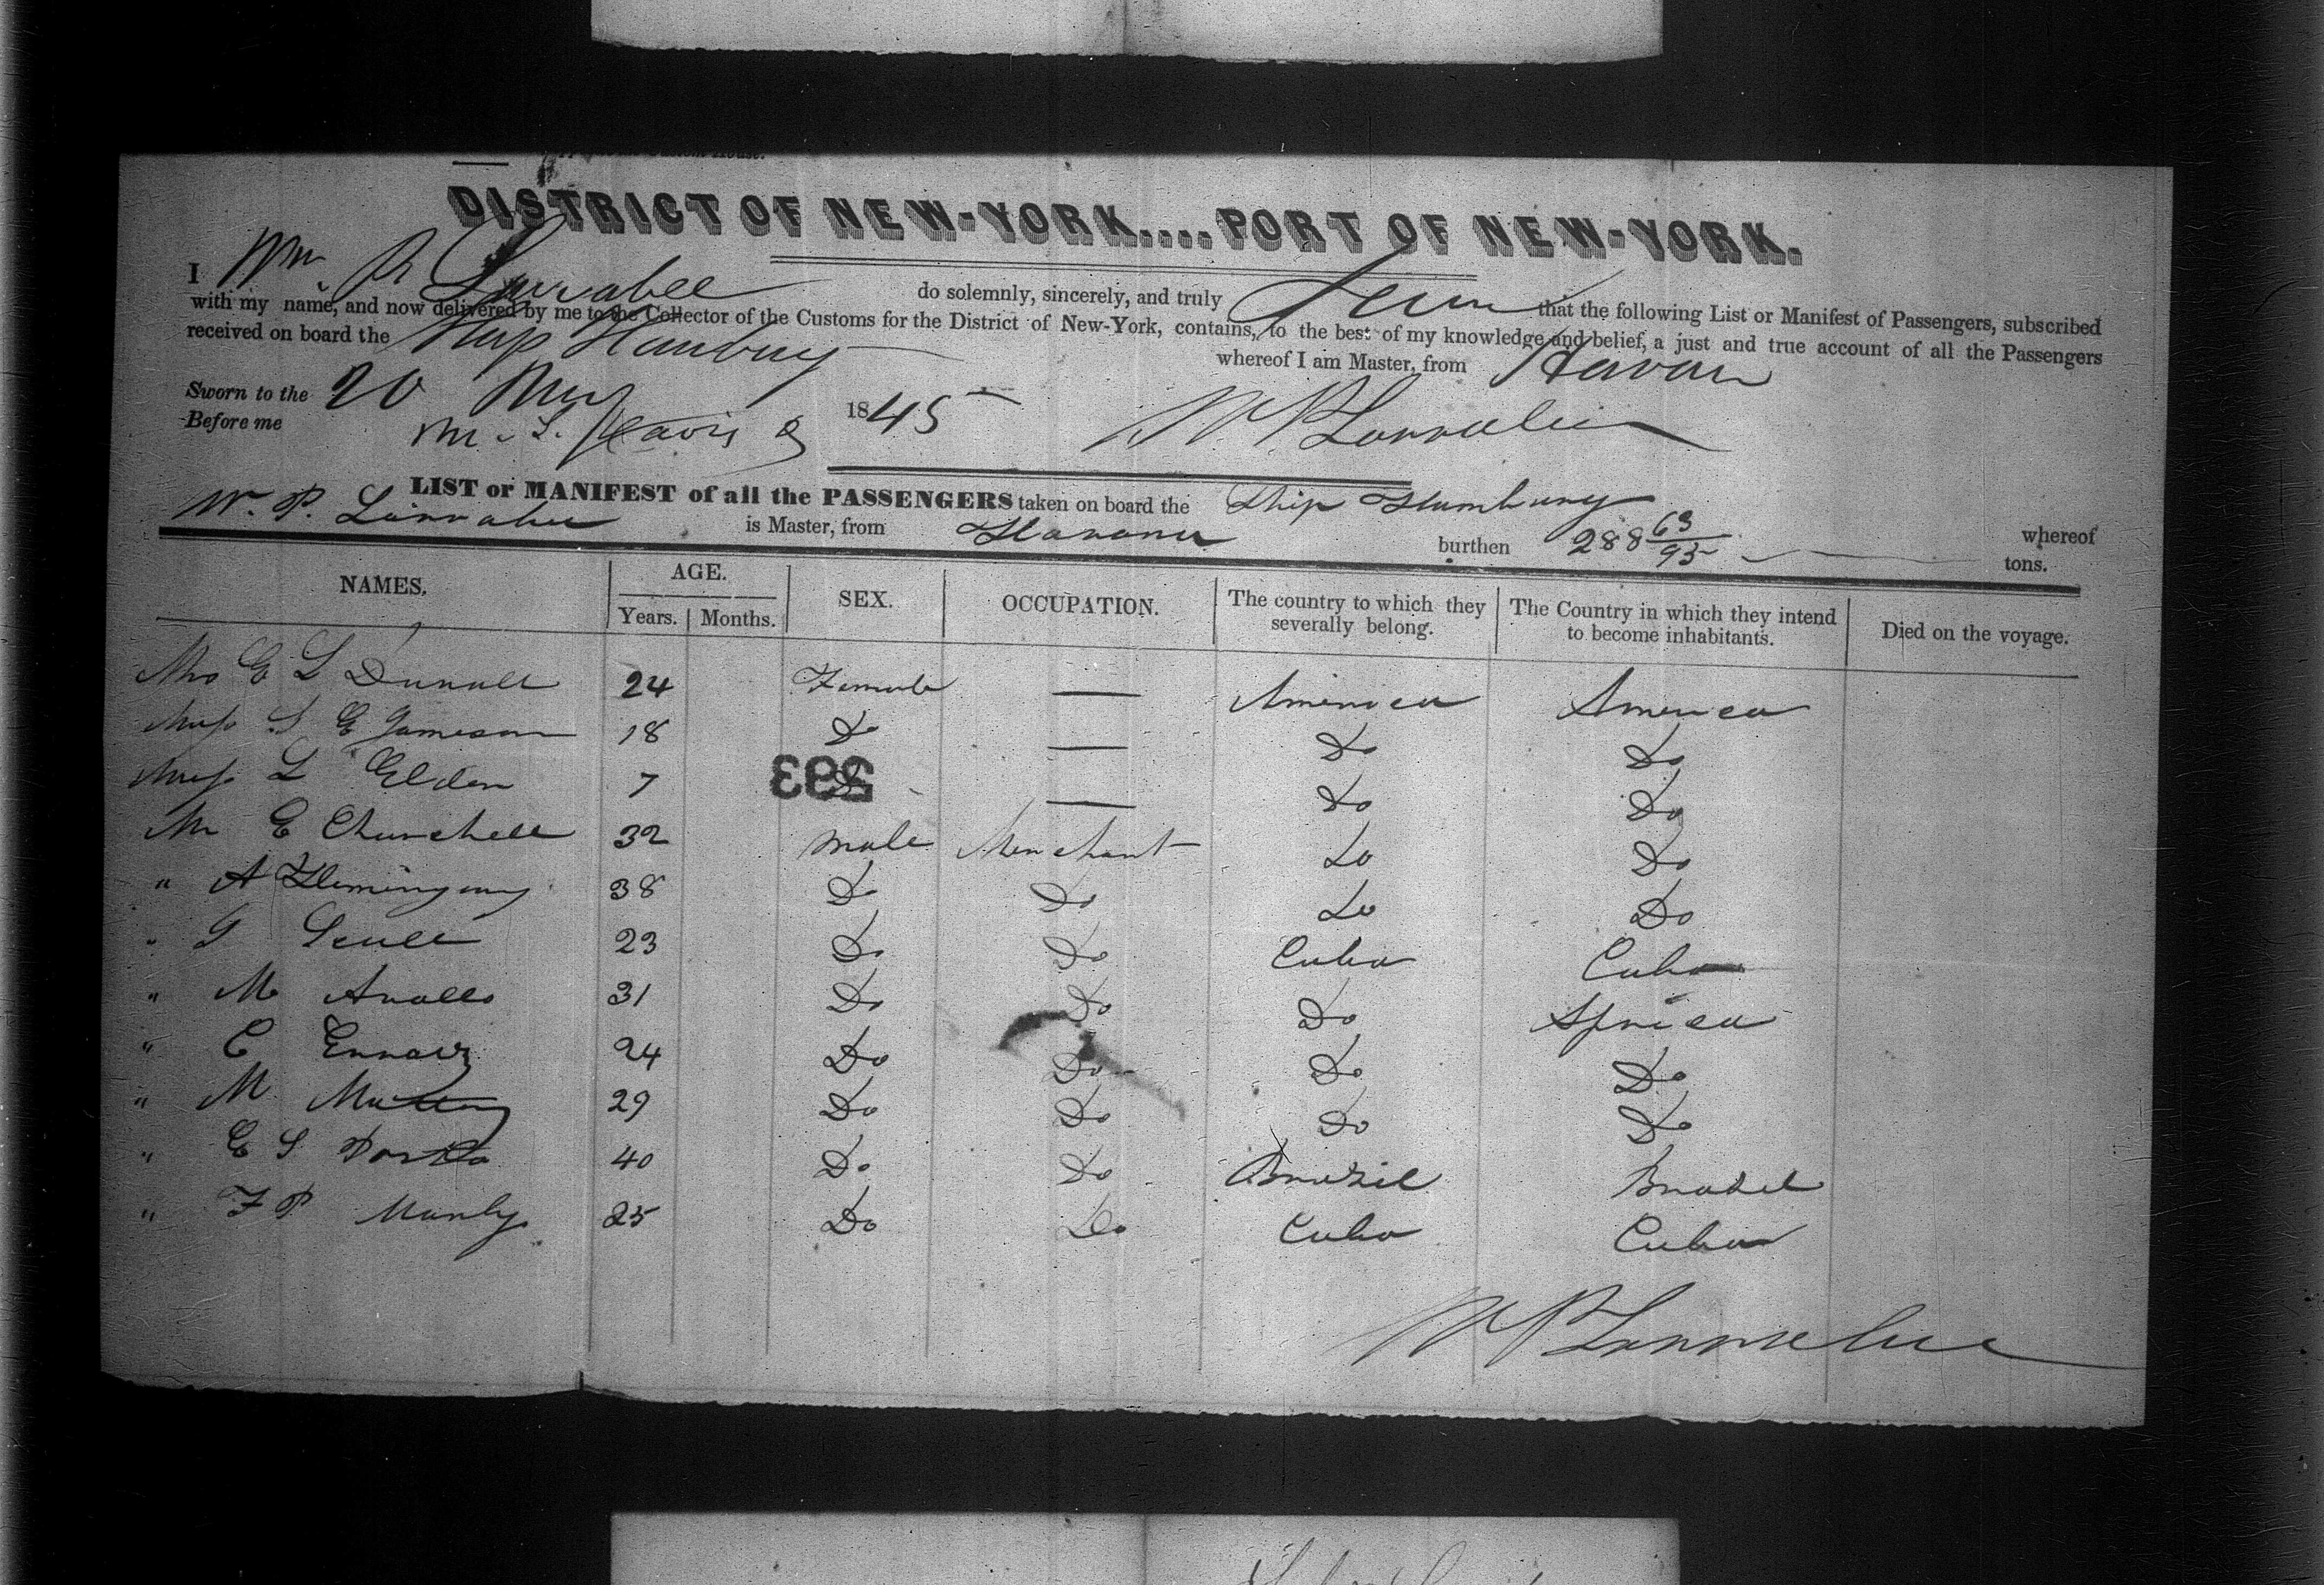 DISTRICT OF NEW-YORK....PORT OF NEW-YORK.
I Wm P Larrabee do solemnly, sincerely, and truly Swear that the following List or Manifest of Passengers, subscribed
with my name, and now delivered by me to the Collector of the Customs for the District of New-York, contains, to the best of my knowledge and belief, a just and true account of all the Passengers
received on board the Ship whereof I am Master, from Havana
Sworn to the 20 May 1845
Before me M. L. Davis W P Larrabee
LIST or MANIFEST of all the PASSENGERS taken on board the Ship whereof
W. P. Larrabee is Master, from Havana burthen 288 63/95 tons.
NAMES. AGE. SEX. OCCUPATION. The country to which they severally belong. The Country in which they intend to become inhabitants. Died on the voyage.
Years. Months.
Mrs E L 24 Female — America America
Miss S E Jameson 18 Do — Do Do
Miss L Elden 7 Do — Do Do
593
Mr E Churchell 32 male Merchant Do Do
" A Hemingway 38 Do Do Do Do
" Scull 23 Do Do Cuba Cuba
" M 31 Do Do Do Africa
" C 24 Do Do Do Do
" M 29 Do Do Do Do
" E S 40 Do Do Brazil Brazil
" F P Manly 25 Do Do Cuba Cuba
W P Larrabee